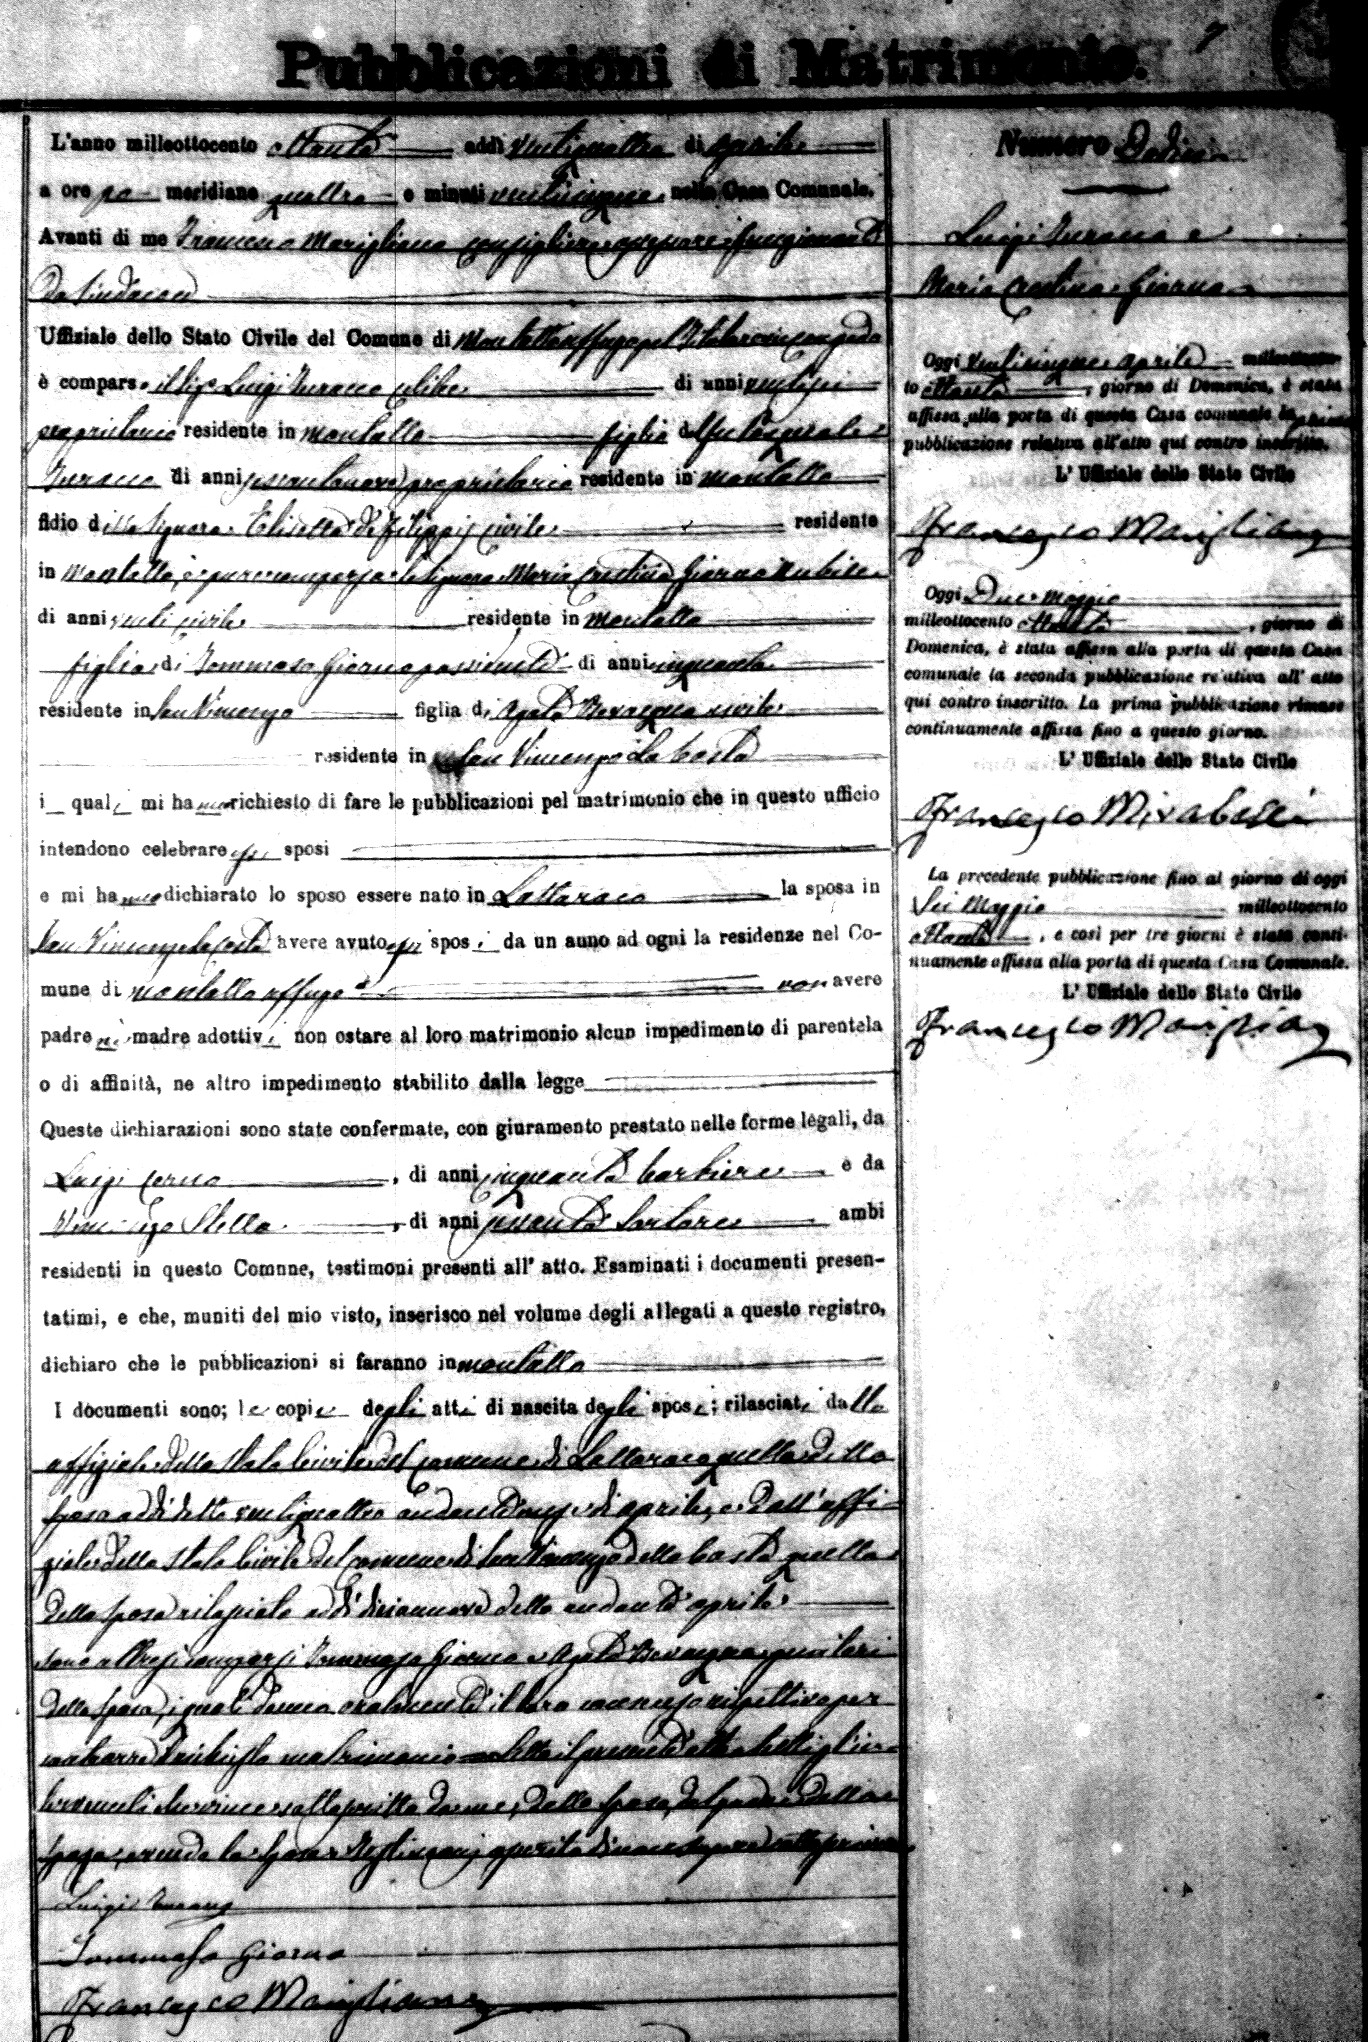 Pubblicazioni di Matrimonio.
7
L'anno milleottocento ottanta addì ventiquattro di Aprile
a ore po meridiane quattro e minuti venticinque nella Casa Comunale.
Avanti di me Francesco Marigliano consigliere funzionante
Da Sindaco
Uffiziale dello Stato Civile del Comune di Montalto uffugo pel Titolare
è compars o il Sig. Luigi Turano celibe di anni ventisei
proprietario residente in Montalto figlio di Pasquale
Turano di anni sessantanove proprietario residente in Montalto
fidio della Signora Elisetta di Filippis civile residente
in Montalto, è pure comparsa la Signora Maria Cristina Giorno nubile
di anni venti civile residente in Montalto
figlia di Tommaso Giorno possidente di anni cinquanta
residente in San Vincenzo figlia di Agata Bevacqua civile
residente in San Vincenzo La Costa
i quali mi hanno richiesto di fare le pubblicazioni pel matrimonio che in questo ufficio
intendono celebrare essi sposi
e mi hanno dichiarato lo sposo essere nato in Lattaraco la sposa in
San Vincenzo La Costa avere avuto essi sposi da un anno ad ogni la residenze nel Co-
mune di Montalto uffugo non avere
padre nè madre adottivi non ostare al loro matrimonio alcun impedimento di parentela
o di affinità, ne altro impedimento stabilito dalla legge
Queste dichiarazioni sono state confermate, con giuramento prestato nelle forme legali, da
Luigi , di anni cinquanta barbiere e da
Vincenzo Stella , di anni sessanta Sartore ambi
residenti in questo Comune, testimoni presenti all' atto. Esaminati i documenti presen-
tatimi, e che, muniti del mio visto, inserisco nel volume degli allegati a questo registro,
dichiaro che le pubblicazioni si faranno in Montalto
I documenti sono; le copie degli atti di nascita degli sposi; rilasciati dallo
uffiziale dello Stato Civile del comune di Lattaraco quella dello
sposo addì detto ventiquattro andante mese di aprile, e dall'uffi-
ziale dello Stato Civile del comune di San Vincenzo della Costa quella
della sposa rilasciata addì diciannove dello andante aprile
Sono altresì comparsi Tommaso Giorno e Agata Bevacqua genitori
della sposa, i quali danno oralmente il loro consenso rispettivo per
matrimonio Letto il presente atto
da me, dallo sposo, dal padre della
sposa, avendo la sposa
Luigi Turano
Tommaso Giorno
Francesco Marigliano
Numero Dodici
Luigi Turano e
Maria Cristina Giorno
Oggi Venticinque Aprile milleottocen-
to ottanta , giorno di Domenica, è stata
affissa alla porta di questa Casa comunale la prima
pubblicazione relativa all'atto qui contro inscritto.
L' Uffiziale dello Stato Civile
Francesco Marigliano
Oggi Due Maggio
milleottocento ottanta , giorno di
Domenica, è stata affissa alla porta di questa Casa
comunale la seconda pubblicazione relativa all' atto
qui contro inscritto. La prima pubblicazione rimase
continuamente affissa fino a questo giorno.
L' Uffiziale dello Stato Civile
Francesco Mirabelli
La precedente pubblicazione fino al giorno di oggi
Sei Maggio milleottocento
ottanta , e così per tre giorni è stata conti-
nuamente affissa alla porta di questa Casa Comunale.
L' Uffiziale dello Stato Civile
Francesco Marigliano